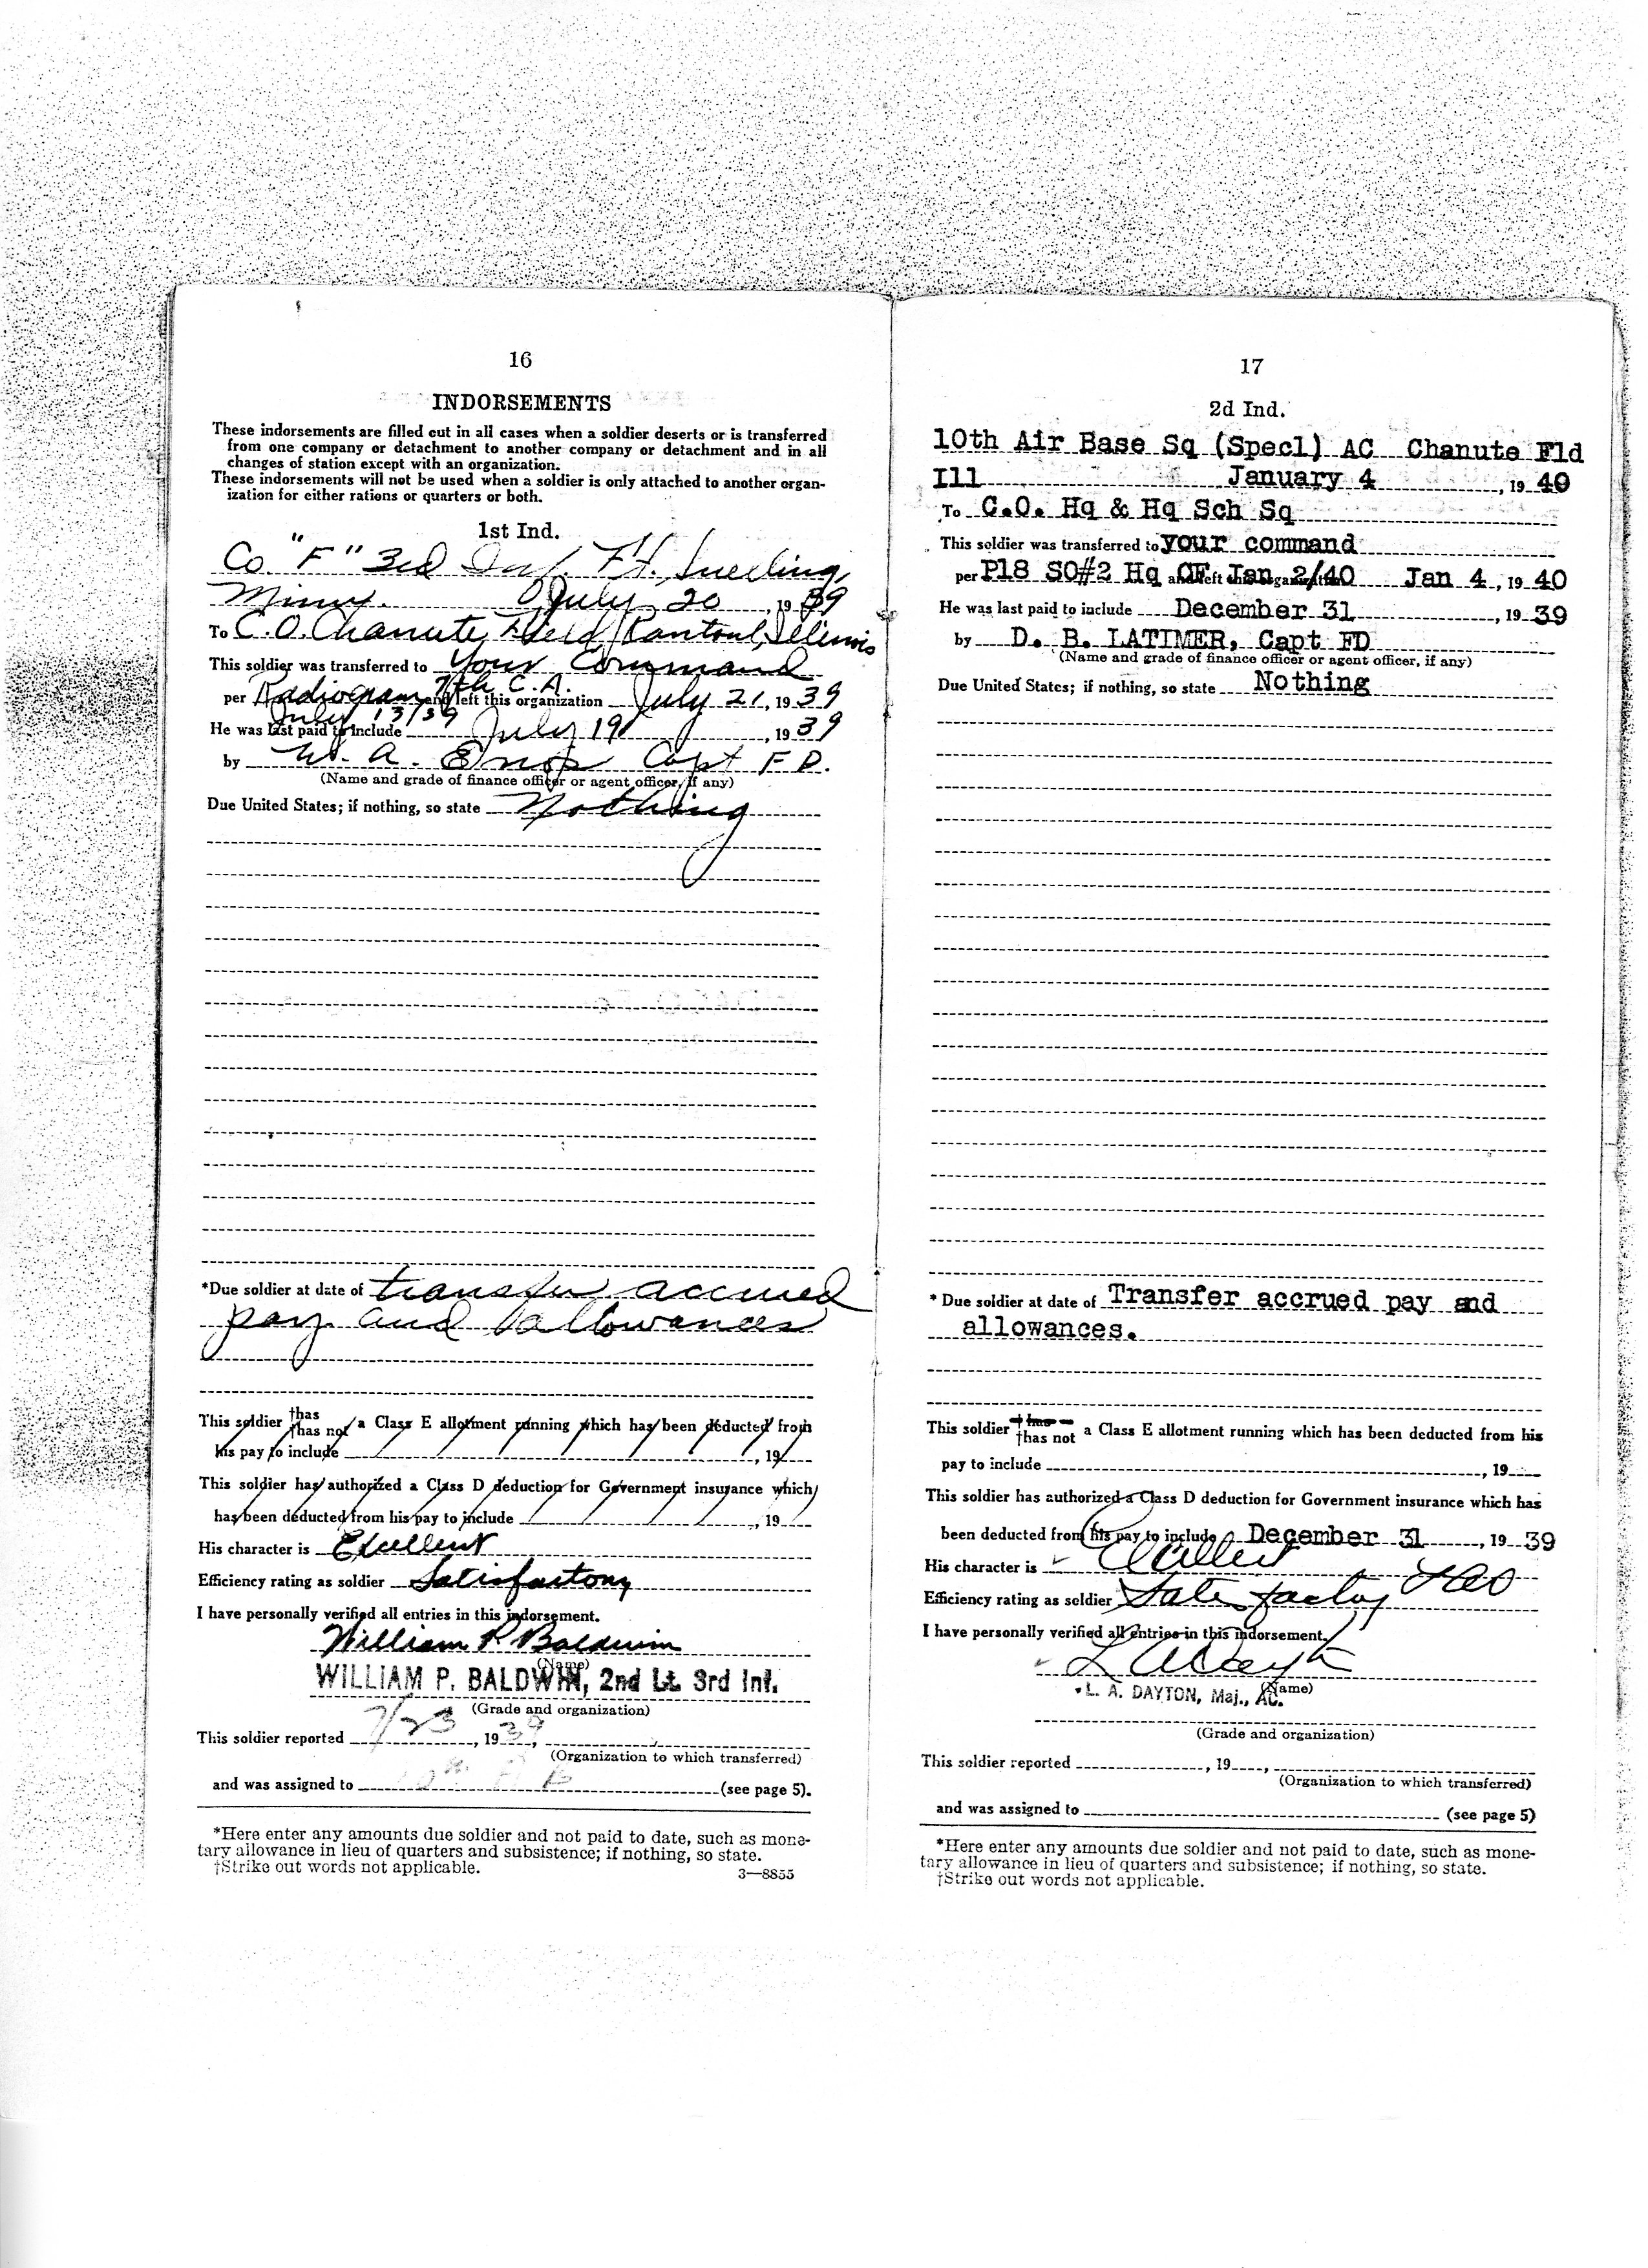 16
INDORSEMENTS
These indorsements are filled out in all cases when a soldier deserts or is transferred
from one company or detachment to another company or detachment and in all
changes of station except with an organization.
These indorsements will not be used when a soldier is only attached to another organ-
ization for either rations or quarters or both.
1st Ind.
Co "F" 3rd Inf. Ft. Snelling,
Minn. July 20, 1939
To C.O. Chanute Field Rantoul, Illinois
This soldier was transferred to Your Command
per Radiogram 7th C.A. and left this organization July 21, 1939
July 13/39
He was last paid to include July 19, 1939
by W. A. Capt F D.
(Name and grade of finance officer or agent officer, if any)
Due United States; if nothing, so state Nothing
*Due soldier at date of transfer accrued
pay and allowances
This soldier †has †has not a Class E allotment running which has been deducted from
his pay to include , 19
This soldier has authorized a Class D deduction for Government insurance which
has been deducted from his pay to include , 19
His character is Excellent
Efficiency rating as soldier Satisfactory
I have personally verified all entries in this indorsement.
William P. Baldwin
(Name)
WILLIAM P. BALDWIN, 2nd Lt. 3rd Inf.
(Grade and organization)
This soldier reported 7/23, 1939,
(Organization to which transferred)
and was assigned to (see page 5).
*Here enter any amounts due soldier and not paid to date, such as mone-
tary allowance in lieu of quarters and subsistence; if nothing, so state.
†Strike out words not applicable. 3—8855
17
2d Ind.
10th Air Base Sq (Specl) AC Chanute Fld
Ill January 4, 1940
To C.O. Hq & Hq Sch Sq
This soldier was transferred to your command
per P18 SO#2 Hq CF Jan 2/40 and left this organization Jan 4, 1940
He was last paid to include December 31, 1939
by D. B. LATIMER, Capt FD
(Name and grade of finance officer or agent officer, if any)
Due United States; if nothing, so state Nothing
* Due soldier at date of Transfer accrued pay and
allowances.
This soldier †has †has not a Class E allotment running which has been deducted from his
pay to include , 19
This soldier has authorized a Class D deduction for Government insurance which has
been deducted from his pay to include December 31, 1939
His character is Excellent
Efficiency rating as soldier Satisfactory
I have personally verified all entries in this indorsement.
L A Dayton
(Name)
L. A. DAYTON, Maj., AC.
(Grade and organization)
This soldier reported , 19 ,
(Organization to which transferred)
and was assigned to (see page 5)
*Here enter any amounts due soldier and not paid to date, such as mone-
tary allowance in lieu of quarters and subsistence; if nothing, so state.
†Strike out words not applicable.